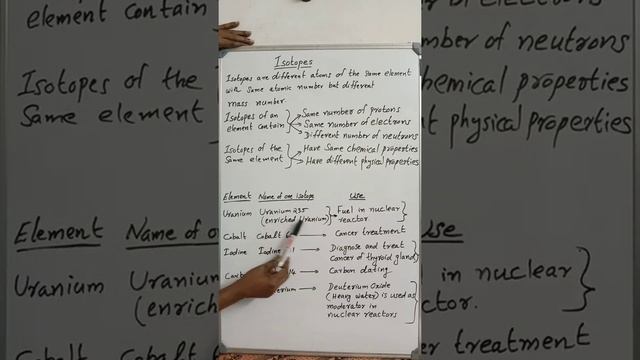 Isotopes
Isotopes are different atoms of the same element
with same atomic number but different
mass number
Isotopes of an element contain
Same number of protons
Same number of electrons
Different number of neutrons
Isotopes of the Same element
Have Same chemical properties
Have different physical properties
Element Name of one isotope Use
Uranium Uranium 235 (enriched Uranium) Fuel in nuclear reactor
Cobalt Cobalt Cancer treatment
Iodine Iodine Diagnose and treat cancer of thyroid gland
Carbon dating
Deuterium Oxide
(Heavy water) is used as
moderator in
nuclear reactors
element contain
Isotopes of the
Same element
mber of neutrons
chemical properties
t physical properties
Element Name of
Uranium Uranium
(enriched
Cobalt Cobalt
Use
in nuclear
reactor.
treatment